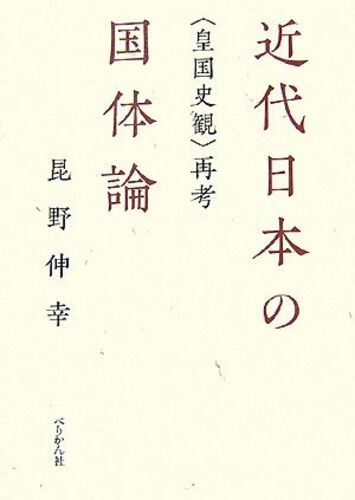 近代日本の
国体論
〈皇国史観〉再考
昆野伸幸
ぺりかん社